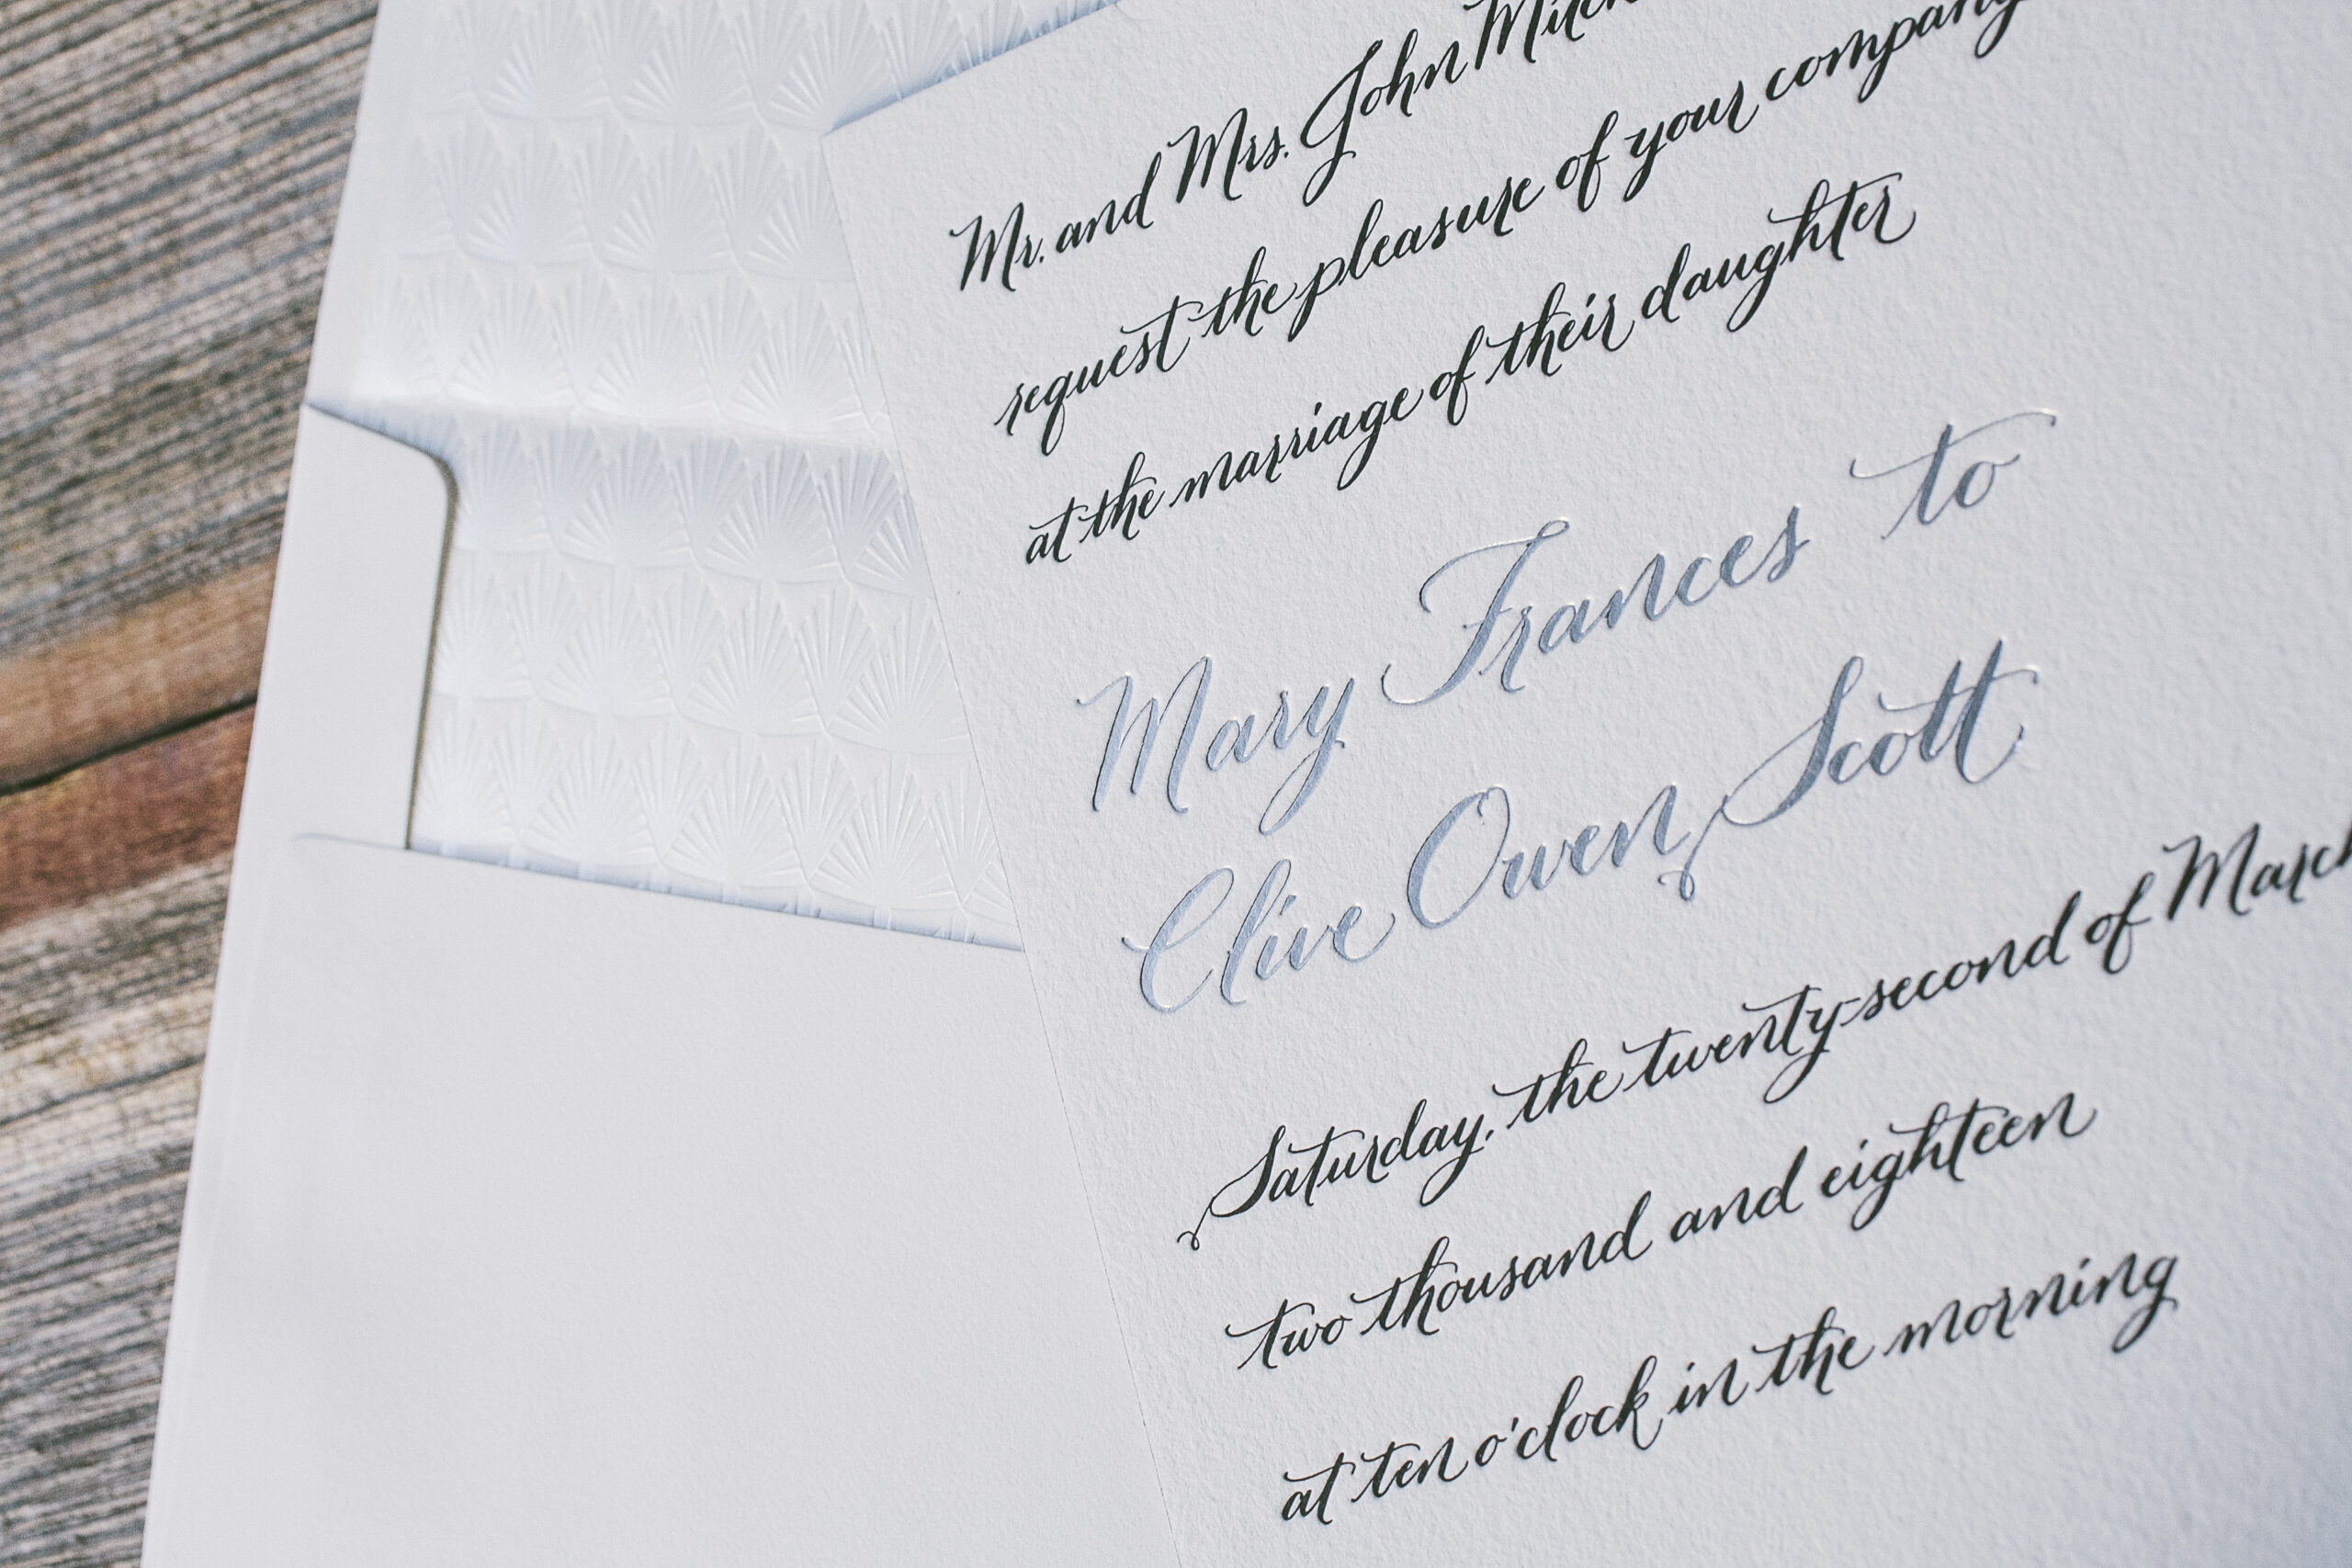 Mr. and Mrs. John
request the pleasure of your company
at the marriage of their daughter
Mary Frances to
Clive Owen Scott
Saturday, the twenty-second of March
two thousand and eighteen
at ten o'clock in the morning